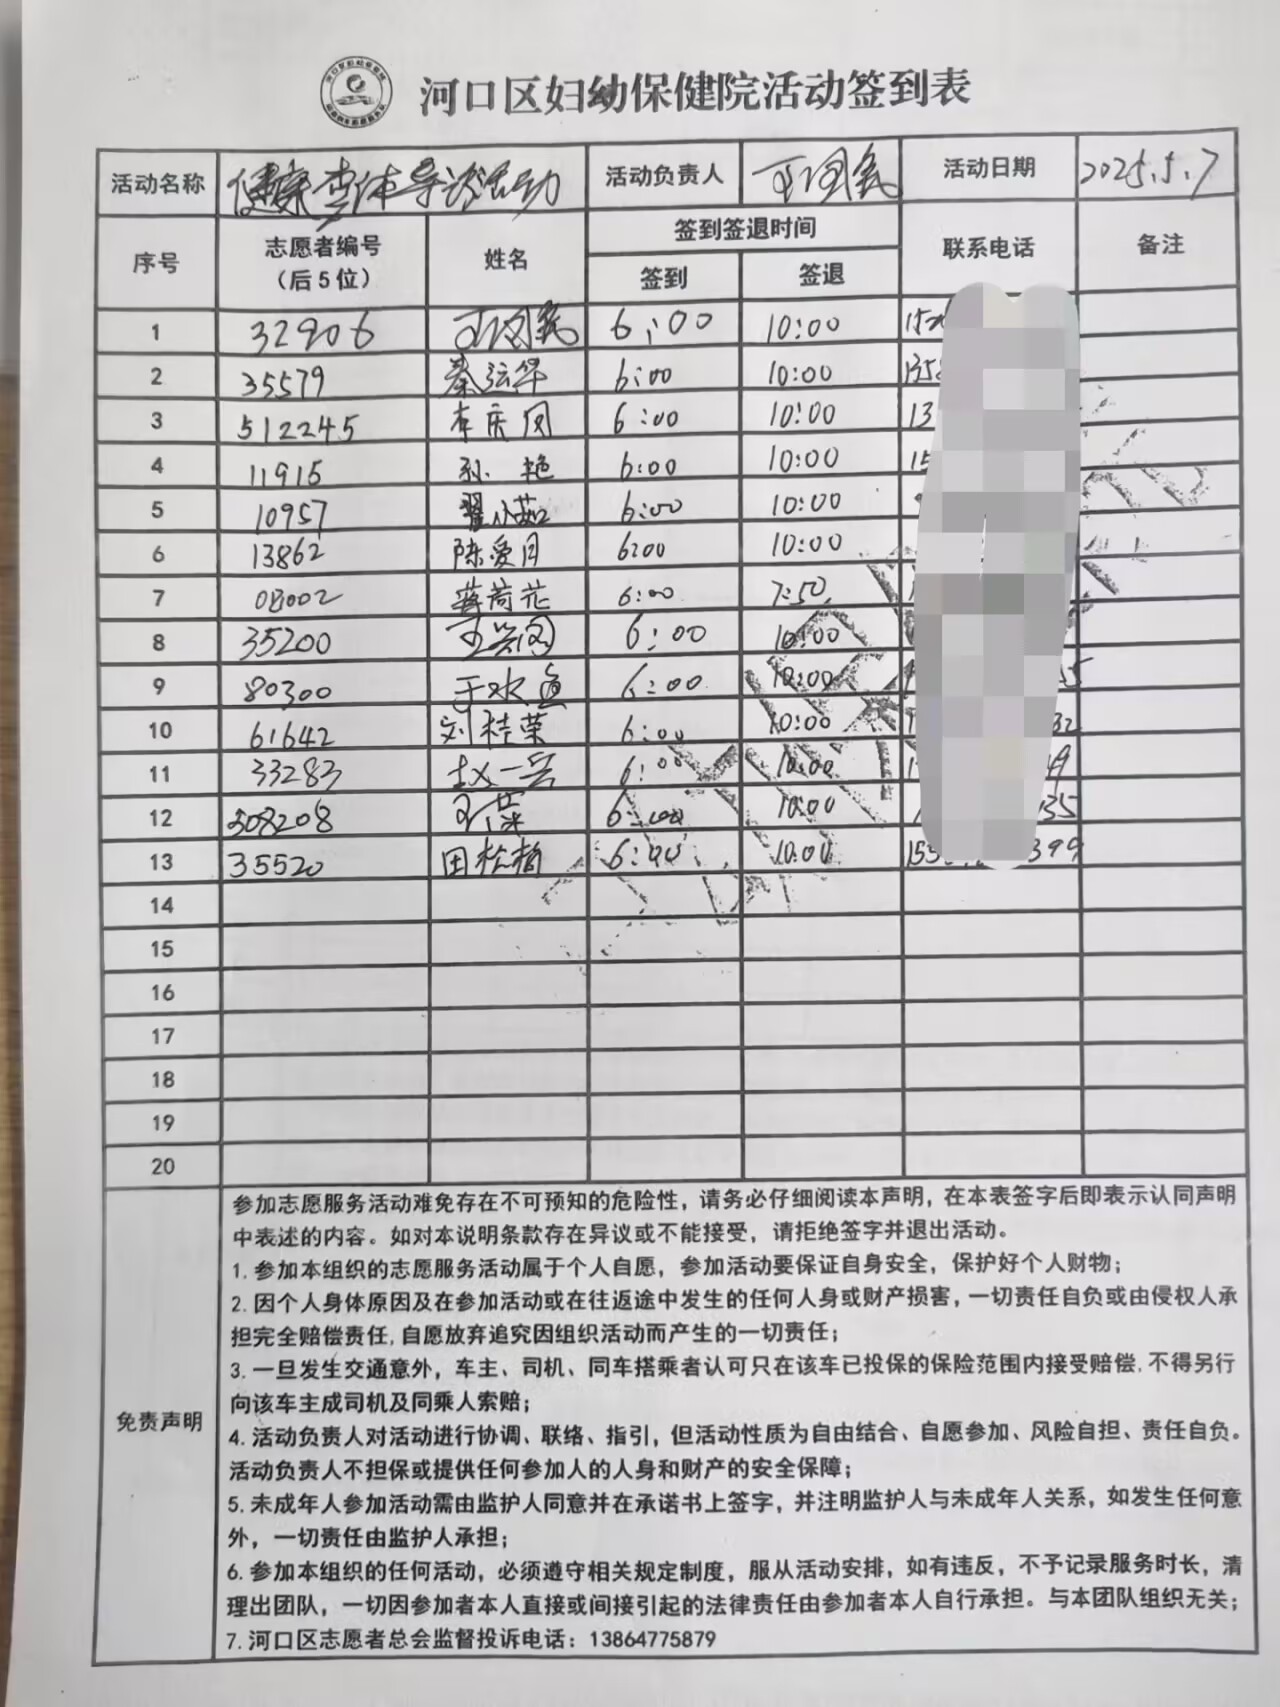 河口区妇幼保健院活动签到表
活动名称 健康查体导诊活动 活动负责人 王国民 活动日期 2025.5.7
序号 志愿者编号（后5位） 姓名 签到签退时间 联系电话 备注
签到 签退
1 32906 王国民 6:00 10:00
2 35579 秦运华 6:00 10:00
3 512245 李庆凤 6:00 10:00
4 11915 孙艳 6:00 10:00
5 10957 翟小茹 6:00 10:00
6 13862 陈爱月 6:00 10:00
7 08002 蒋荷花 6:00 7:50
8 35200 王兴国 6:00 10:00
9 80300 于水鱼 6:00 10:00
10 61642 刘桂荣 6:00 10:00
11 33283 赵一兵 6:00 10:00
12 308208 6:00 10:00
13 35520 田松梅 6:00 10:00
14
15
16
17
18
19
20
免责声明
参加志愿服务活动难免存在不可预知的危险性，请务必仔细阅读本声明，在本表签字后即表示认同声明
中表述的内容。如对本说明条款存在异议或不能接受，请拒绝签字并退出活动。
1.参加本组织的志愿服务活动属于个人自愿，参加活动要保证自身安全，保护好个人财物；
2.因个人身体原因及在参加活动或在往返途中发生的任何人身或财产损害，一切责任自负或由侵权人承
担完全赔偿责任,自愿放弃追究因组织活动而产生的一切责任；
3.一旦发生交通意外，车主、司机、同车搭乘者认可只在该车已投保的保险范围内接受赔偿,不得另行
向该车主成司机及同乘人索赔；
4.活动负责人对活动进行协调、联络、指引，但活动性质为自由结合、自愿参加、风险自担、责任自负。
活动负责人不担保或提供任何参加人的人身和财产的安全保障；
5.未成年人参加活动需由监护人同意并在承诺书上签字，并注明监护人与未成年人关系，如发生任何意
外，一切责任由监护人承担；
6.参加本组织的任何活动，必须遵守相关规定制度，服从活动安排，如有违反，不予记录服务时长，清
理出团队，一切因参加者本人直接或间接引起的法律责任由参加者本人自行承担。与本团队组织无关；
7.河口区志愿者总会监督投诉电话：13864775879